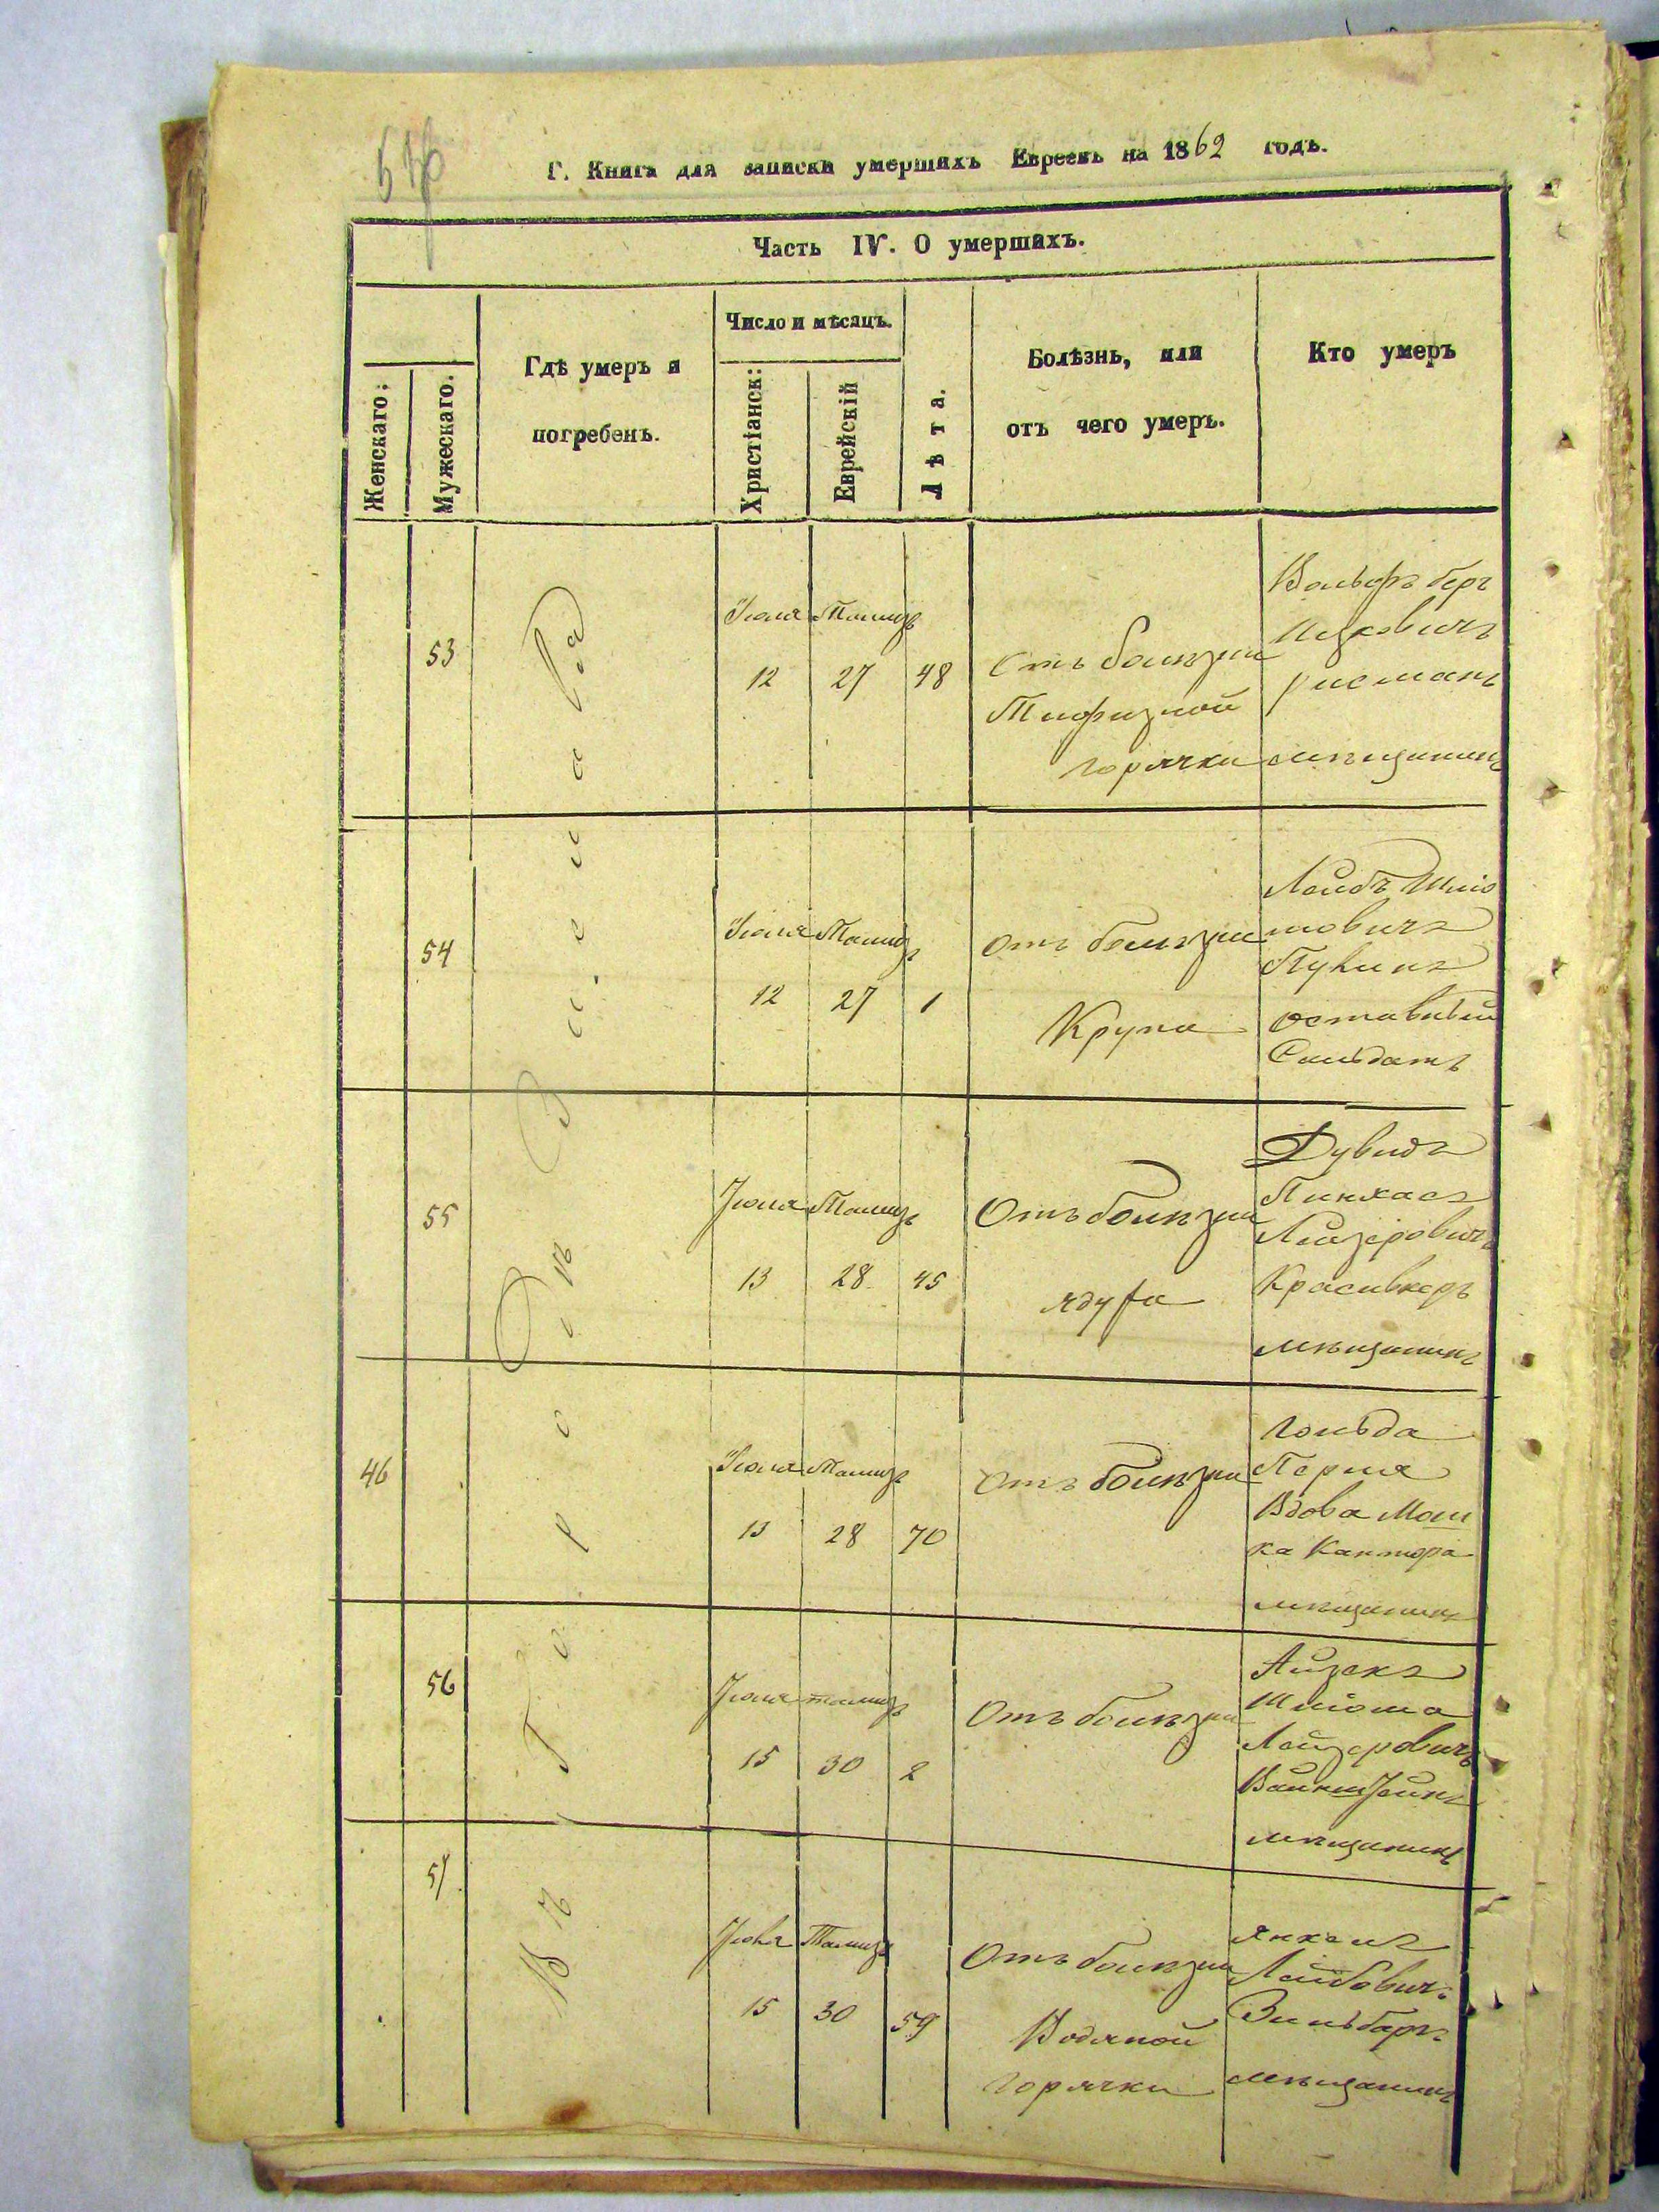 Г. Книга для записки умершихъ Евреевъ на 1862 годъ.
Часть IV. О умершихъ.
Женскаго:
Мужескаго.
Гдѣ умеръ и
погребенъ.
Число и мѣсяцъ.
Христіанск:
Еврейскій
Лѣта.
Болѣзнь, или
отъ чего умеръ.
Кто умеръ
Въ Городѣ
53
Іюля Тамизъ
12 27 48
Отъ болѣзни
Тифизной
горячки
Вольфъ Берг
Ицковичъ
мѣщанинъ
54
Іюля Тамизъ
12 27 1
Отъ болѣзни
Крупа
Лейбъ Шліо
мовичъ
отставный
Сольдатъ
55
Іюля Тамизъ
13 28 45
Отъ болѣзни
ядуха
Дувидъ
Пинхасъ
Лейзеровичъ
мѣщанинъ
46
Іюля Тамизъ
13 28 70
Отъ болѣзни
Гольда
Перля
Вдова Мош
ка Кантора
мѣщанинъ
56
Іюля тамизъ
15 30 2
Отъ болѣзни
Айзекъ
Шліома
Лейзеровичъ
Вайнштейнъ
мѣщанинъ
57
Іюля Тамизъ
15 30 59
Отъ болѣзни
Водяной
горячки
Янкель
Лейбовичъ
Зильбарг
мѣщанинъ